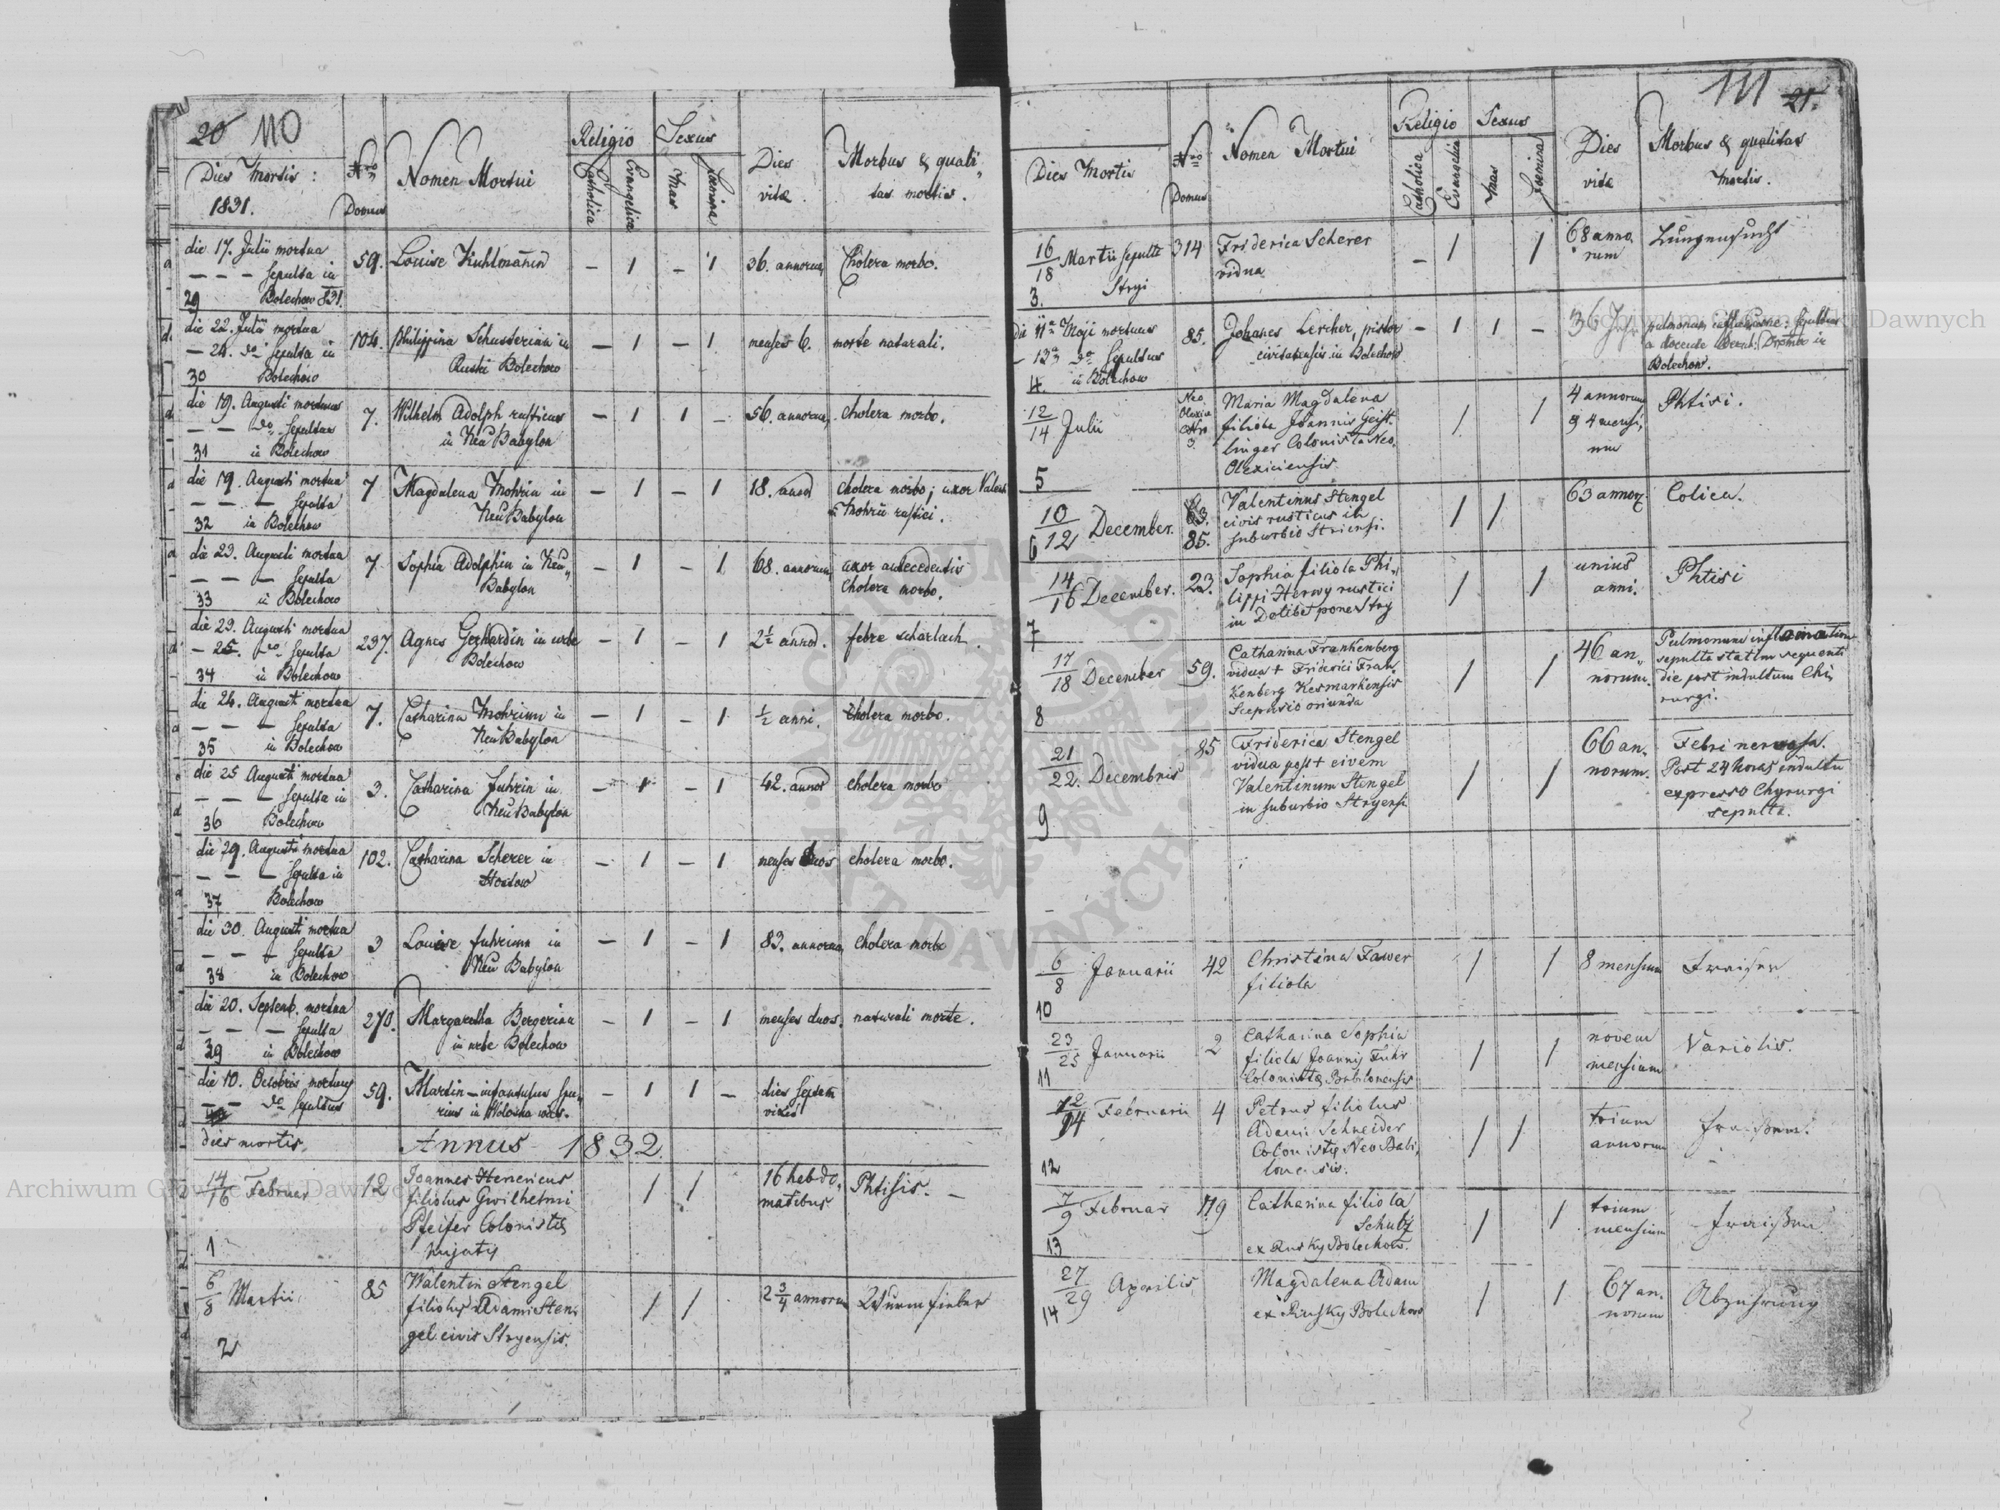 20 110
Dies Mortis :
1831.
Nro
Domus
Nomen Mortui
Religio
Catholica
Evangelica
Sexus
Mas
Foemina
Dies
vitæ
Morbus & quali-
tas mortis.
die 17. Julii mortua
— — — sepulta in
29 Bolechow 831.
59. Louise Kuhlmannin
— 1 — 1
36. annorum
Cholera morbo.
die 22. Julii mortua
— 24. do sepulta in
30 Bolechow
104. Philippina Schusterin in
Ruski Bolechow
— 1 — 1
menses 6. morte naturali.
die 19. Augusti mortuus
— — do sepultus
31 in Bolechow
7. Wilhelm Adolph rusticus
in Neu Babylon
— 1 1 —
56. annorum cholera morbo.
die 19. Augusti mortua
— — — sepulta
32 in Bolechow
7 Magdalena Mohrin in
Neu Babylon
— 1 — 1
18. annor cholera morbo; uxor Valent
Mohrii rustici.
die 23. Augusti mortua
— — — sepulta
33 in Bolechow
7. Sophia Adolphin in Neu
Babylon
— 1 — 1
68. annorum uxor antecedentis
Cholera morbo.
die 23. Augusti mortua
— 25. do sepulta
34 in Bolechow
237. Agnes Gerhardin in urbe
Bolechow
— 1 — 1
2½ annor. febre scharlach.
die 24. Augusti mortua
— — — sepulta
35 in Bolechow
7. Catharina Mohrinn in
Neu Babylon
— 1 — 1
½ anni. Cholera morbo.
die 25 Augusti mortua
— — — sepulta in
36 Bolechow
3. Catharina Fuhrin in
Neu Babylon
— 1 — 1
42. annor cholera morbo
die 29. Augusti mortua
— — — sepulta in
37 Bolechow
102. Catharina Scherer in
— 1 — 1
menses duos cholera morbo.
die 30. Augusti mortua
— — — sepulta
38 in Bolechow
3 Louise Fuhrinn in
Neu Babylon
— 1 — 1
83. annorum cholera morbo
die 20. Septemb. mortua
— — — sepulta
39 in Bolechow
270. Margaretha Bergerinn
in urbe Bolechow
— 1 — 1
menses duos. naturali morte.
die 10. Octobris mortuus
— — do sepultus
40
59. Martin — infantulus spu-
rius in
— 1 1 —
dies septem
vixit
dies mortis.
Annus 1832.
14/16 Februar
1
12 Joannes Henericus
filiolus Gwilhelmi
Pfeifer Colonistæ
hujatis
/ /
16 hebdo-
matibus Phtisis. —
6/8 Martii
2
85 Walentin Stengel
filiolus Adami Sten-
gel civis Stryensis.
/ /
2¾ annorum Wurmfieber
111 21.
Dies Mortis
Nro
Domus
Nomen Mortui
Religio
Catholica
Evangelica
Sexus
Mas
Foemina
Dies
vitæ
Morbus & qualitas
mortis.
16/18 Martii sepult
3. Stryi
314 Friderica Scherer
vidua
— 1 1
68 anno-
rum
Lungensucht
die 11a Maji mortuus
— 13a do sepultus
4. in Bolechow
85. Johanes Lercher, pistor
civitatensis in Bolechow
— 1 1 —
36 J
pulmonum inflamatione: sepultus
a docente in
Bolechow.
12/14 Julii
5
Neo
Olexin
Nro
3.
Maria Magdalena
filiola Joannis Geist-
linger Colonista Neo
Olexiciensis
/ /
4 annorum
9 4 mensi-
um
Phtisi.
10/12 December.
6
63.
85.
Valentinus Stengel
civis rusticus in
suburbio Striensi.
/ /
63 annor Colica.
14/16 December.
7
23. Sophia filiola Phi-
lippi Herwy rustici
in Dolibet pone Stry
/ /
unius
anni.
Phtisi
17/18 December
8
59. Catharina Frankenberg
vidua + Friderici Fran-
kenberg Kesmarkensis
Scepusio oriunda
/ /
46 an-
norum.
Pulmonum inflamation
sepulta statim sequenti
die post indultum Chi-
rurgi.
21/22. Decembris
9
85 Friderica Stengel
vidua post + civem
Valentinum Stengel
in suburbio Stryensi
/ /
66 an-
norum.
Febri nervosa.
Post 24 horas indultu
expresso Chyrurgi
sepulta.
6/8 Januarii
10
42 Christina Fawer
filiola
/ /
8 mensium Fraisen
23/25 Januarii
11
2 Catharina Sophia
filiola Joannis Fuhr
Colonistæ Babilonensis
/ /
novem
mensium
Variolis.
12/14 Februarii
12
4 Petrus filiolus
Adami Schneider
Colonistæ Neo Babi-
lonensis.
/ /
trium
annorum
Fraisen.
7/9 Februar
13
179 Catharina filiola
Schutz
ex Rusky Bolechow.
/ /
trium
mensium
Fraisen
27/29 Aprilis
14
Magdalena Adam
ex Rusky Bolechow
/ /
67 an-
norum
Abzehrung
Archiwum Główne Akt Dawnych
Archiwum Główne Akt Dawnych
ARCHIWUM GŁÓWNE AKT DAWNYCH